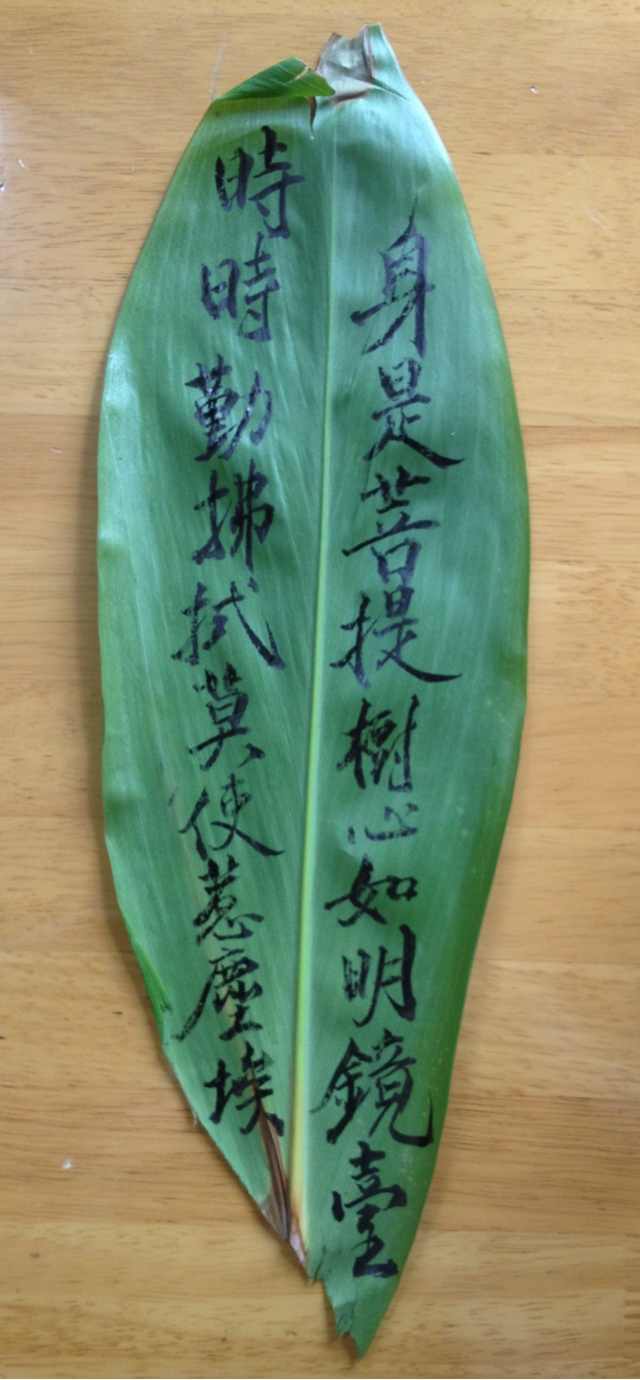 身是菩提樹心如明鏡臺
時時勤拂拭莫使惹塵埃